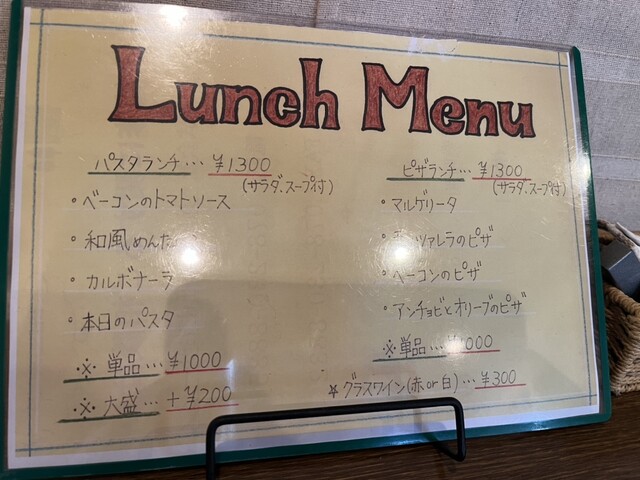 Lunch Menu
パスタランチ… ¥1300
(サラダ、スープ付)
・ベーコンのトマトソース
・和風めんた
・カルボナーラ
・本日のパスタ
※単品… ¥1000
※大盛… +¥200
ピザランチ… ¥1300
(サラダ、スープ付)
・マルゲリータ
ツァレラのピザ
・ベーコンのピザ
・アンチョビとオリーブのピザ
※単品… ¥1000
☆グラスワイン(赤or白)… ¥300